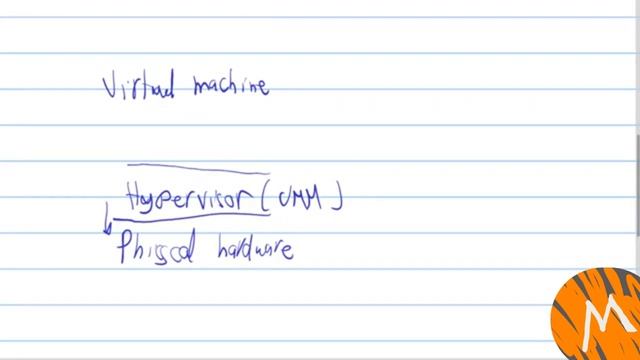 Virtual machine
Hypervisor (VMM)
Phiscal hardware
M